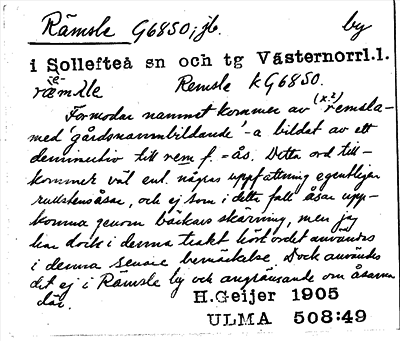 Rämsle G6850; jb. by
i Sollefteå sn och tg Västernorrl.l.
ræmsle Remsle kG6850.
Förmodar namnet kommer av (x.2) remsla-
med 'gårdsnamnbildande' -a bildat av ett
deminutiv till rem f. = ås. Detta ord till-
kommer väl enl. några uppfattning egentligen
rullstensåsar, och ej som i detta fall åsar upp-
komna genom bäckars skärning, men jag
har dock i denna trakt hört ordet användas
i denna senare bemärkelse. Dock användes
det ej i Rämsle by och angränsande om åsarna
där.
H.Geijer 1905
ULMA 508:49